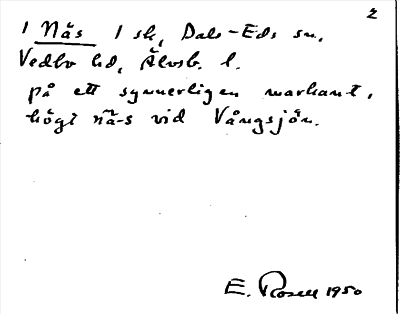 2
1 Näs 1 sk, Dals-Eds sn,
Vedbo hd, Älvsb. l.
på ett synnerligen markant,
högt näs vid Vångsjön.
E. Rosell 1950